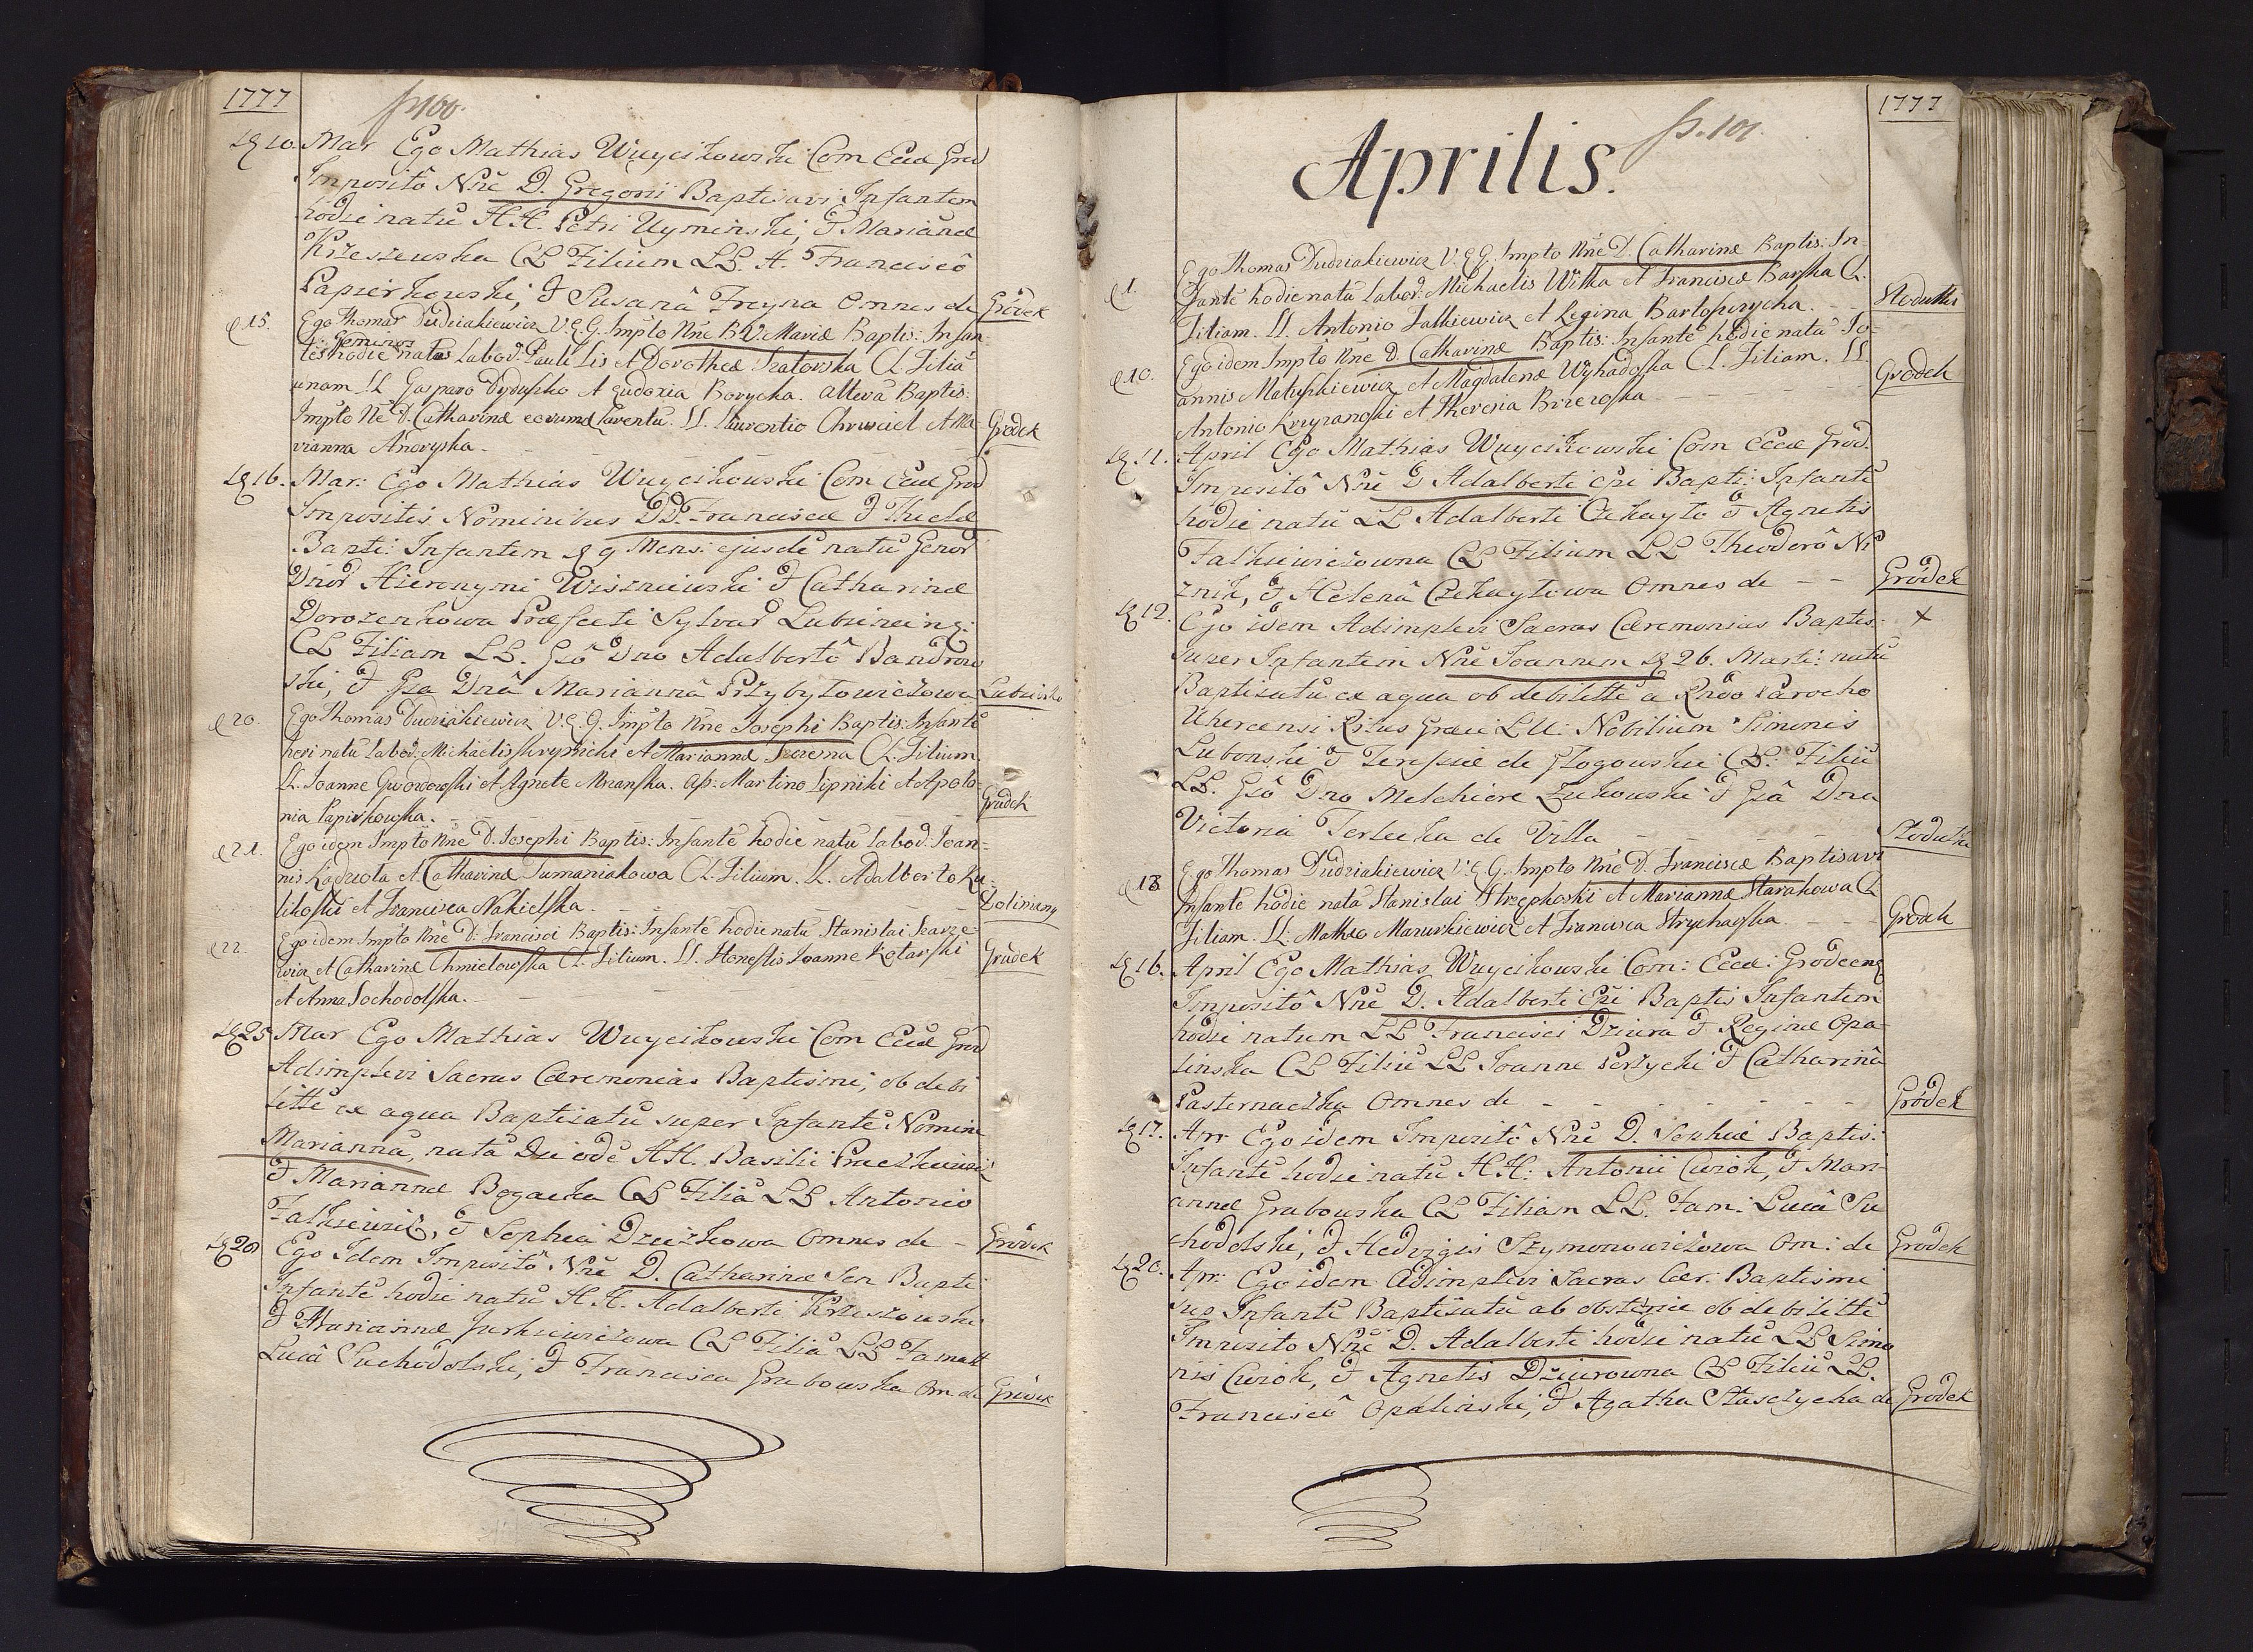 1777
p. 100.
10. Mar Ego Mathias Wuycikowski Com Eccl Grod
Impositô Nnē D. Gregorii Baptisavi Infantem
hodie natū H.H. Petri Uyminski, & Mariannæ
Krzeszewska CL Filium LL. H. Franciscô
Papierkowski, & Susanâ Freyna Omnes de Gródek
15. Ego Thomas Dudziakiewicz V.E.G. Impto Nnē B.V. Mariæ Baptis: Infan-
Geminos
tes hodie natas Labor: Pauli Lis et Dorotheæ Szatowska CL Filiā
unam LL Gasparo Dydusko et Eudoxia Borycka. alterā Baptis:
Impto Nē D. Catharinæ eorumd Parentū. LL. Laurentio Chrusciel et Ma-
rianna Anoryska. Gródek
16. Mar: Ego Mathias Wuycikowski Com Eccl Grod
Impositis Nominibus DD. Franciscæ & Theclæ
Bapti: Infantem 9 Mensi ejusdē natū Gener
Dnor Hieronymi Wiszniewski & Catharinæ
Dorozenkowa Præfecti Sylvar Lubinieing:
CL Filiam LL. Gsô Dno Adalbertô Bandrow
ski, & Gsa Dnâ Mariannâ Przybyłowiczowa Lubinsko
20. Ego Thomas Dudziakiewicz V.E.G. Impto Nne Josephi Baptis: Infantē
heri natū Labor: Michaelis Skrypnicki et Mariannæ CL. Filium
LL. Joanne Gwozdowski et Agnete Mranska. as: Martino Lipniki et Apolo-
nia Papirkowska. Gródek
21. Ego idem Impto Nnē D. Josephi Baptis: Infantē hodie natū Labor: Joan-
nis Ładzota et Catharinæ Tumaniakowa CL Filium. LL. Adalberto Ku-
likoski et Francisca Nakielska. Doliniany
22. Ego idem Impto Nnē D. Francisci Baptis: Infantē hodie natū Stanislai Skarze-
wicz et Catharinæ Chmielowska CL Filium. LL. Honestis Joanne Kotarski Gródek
et Anna Sochodolska.
25 Mar Ego Mathias Wuycikowski Com Eccl Grod
Adimplevi Sacras Cæremonias Baptismi, ob debi
littē ex aqua Baptisatū super Infantē Nomine
Mariannā, natā Die eodē H.H. Basilii
& Mariannæ Bogacka CL Filiā LL Antonio
Falkiewicz, & Sophia Dzeczkowa Omnes de Gródek
Ego Idem Impositô Nnē D. Catharinæ Sen Bapti
Infantē hodie natū H.H. Adalberti Krzeszowski
& Mariannæ Jurkiewiczowa CL Filiā LL Famatt
Lucâ Suchodolski, & Francisca Grabowska Om de Gródek
1777
p. 101.
Aprilis.
1. Ego Thomas Dudziakiewicz V.E.G. Impto Nnē D. Catharinæ Baptis: In-
fantē hodie natā Labor: Michaelis Witka et Franciscæ Barska CL.
Filiam. LL. Antonio Falkiewicz et Regina Bartoszycka. Stodułki
10. Ego idem Impto Nne D. Catharinæ Baptis: Infantē hodie natā Jo-
annis Matyskiewicz et Magdalenæ Wyhadoska CL. Filiam. LL. Gródek
Antonio Krzyzanoski et Theresia Brzezoska
11. April Ego Mathias Wuycikowski Com Eccl Grod.
Impositô Nnē D Adalberti Epi Bapti: Infantē
hodie natū LL Adalberti Czekayło & Agnetis
Falkiewiczowna CL Filium LL Theodorô Ni
znik, & Helenâ Czekayłowa Omnes de Gródek
12. Ego idem Adimplevi Sacras Cæremonias Baptis: X
super Infantem Nnē Joannem 26. Marti: natū
Baptisatū ex aqua ob debilittē a Rndo Parocho
Uhercensi Ritus Græci LL: Nobilium Simonis
Lubonski & Teresiæ de Głogowski CL: Filiū
LL. Gsô Dno Melchiore Zukowski & Gsâ Dna
Victoria Terlecka de Villa Stodułki
13. Ego Thomas Dudziakiewicz V.E.G. Impto Nnē D. Franciscæ Baptisavi
Infantē hodie natā Stanislai Strzepkoski et Mariannæ Starakowa CL
Filiam. LL. Matheo Mazurkiewicz et Francisca Strychalska Gródek
16. April Ego Mathias Wuycikowski Com: Eccl: Grodecng
Impositô Nnē D. Adalberti Epi Baptis Infantem
hodie natum LL Francisci Dziura & Reginæ Opa-
linska CL Filiū LL Joanne Perzycki & Catharinâ
Pasternacka Omnes de Gródek
17. Apr Ego idem Impositô Nnē D. Sophiæ Baptis:
Infantē hodie natū H.H: Antonii Cwiok, & Mari-
annæ Grabowska CL Filiam LL. Fam: Lucâ Su
chodolski, & Hedvigis Szymonowiczowa Om: de Gródek
20. Apr: Ego idem Adimplevi Sacras Cær: Baptismi
sup Infantē Baptisatū ab obstetrice ob debilittē
Imposito Nnē D. Adalberti hodie natū LL Simo
nis Cwiok, & Agnetis Dziurowna CL Filiū LL.
Franciscô Opalinski, & Agatha Staszycka de Gródek